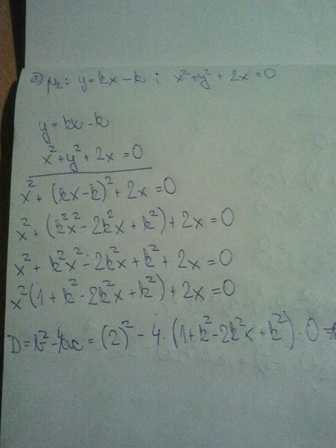 y=kx-k i x²+y²+2x=0
y=kx-k
x²+y²+2x=0
x²+(kx-k)²+2x=0
x²+(k²x²-2k²x+k²)+2x=0
x²+k²x²-2k²x+k²+2x=0
x²(1+k²-2k²x+k²)+2x=0
D=b²-4ac=(2)²-4·(1+k²-2k²x+k²)·0